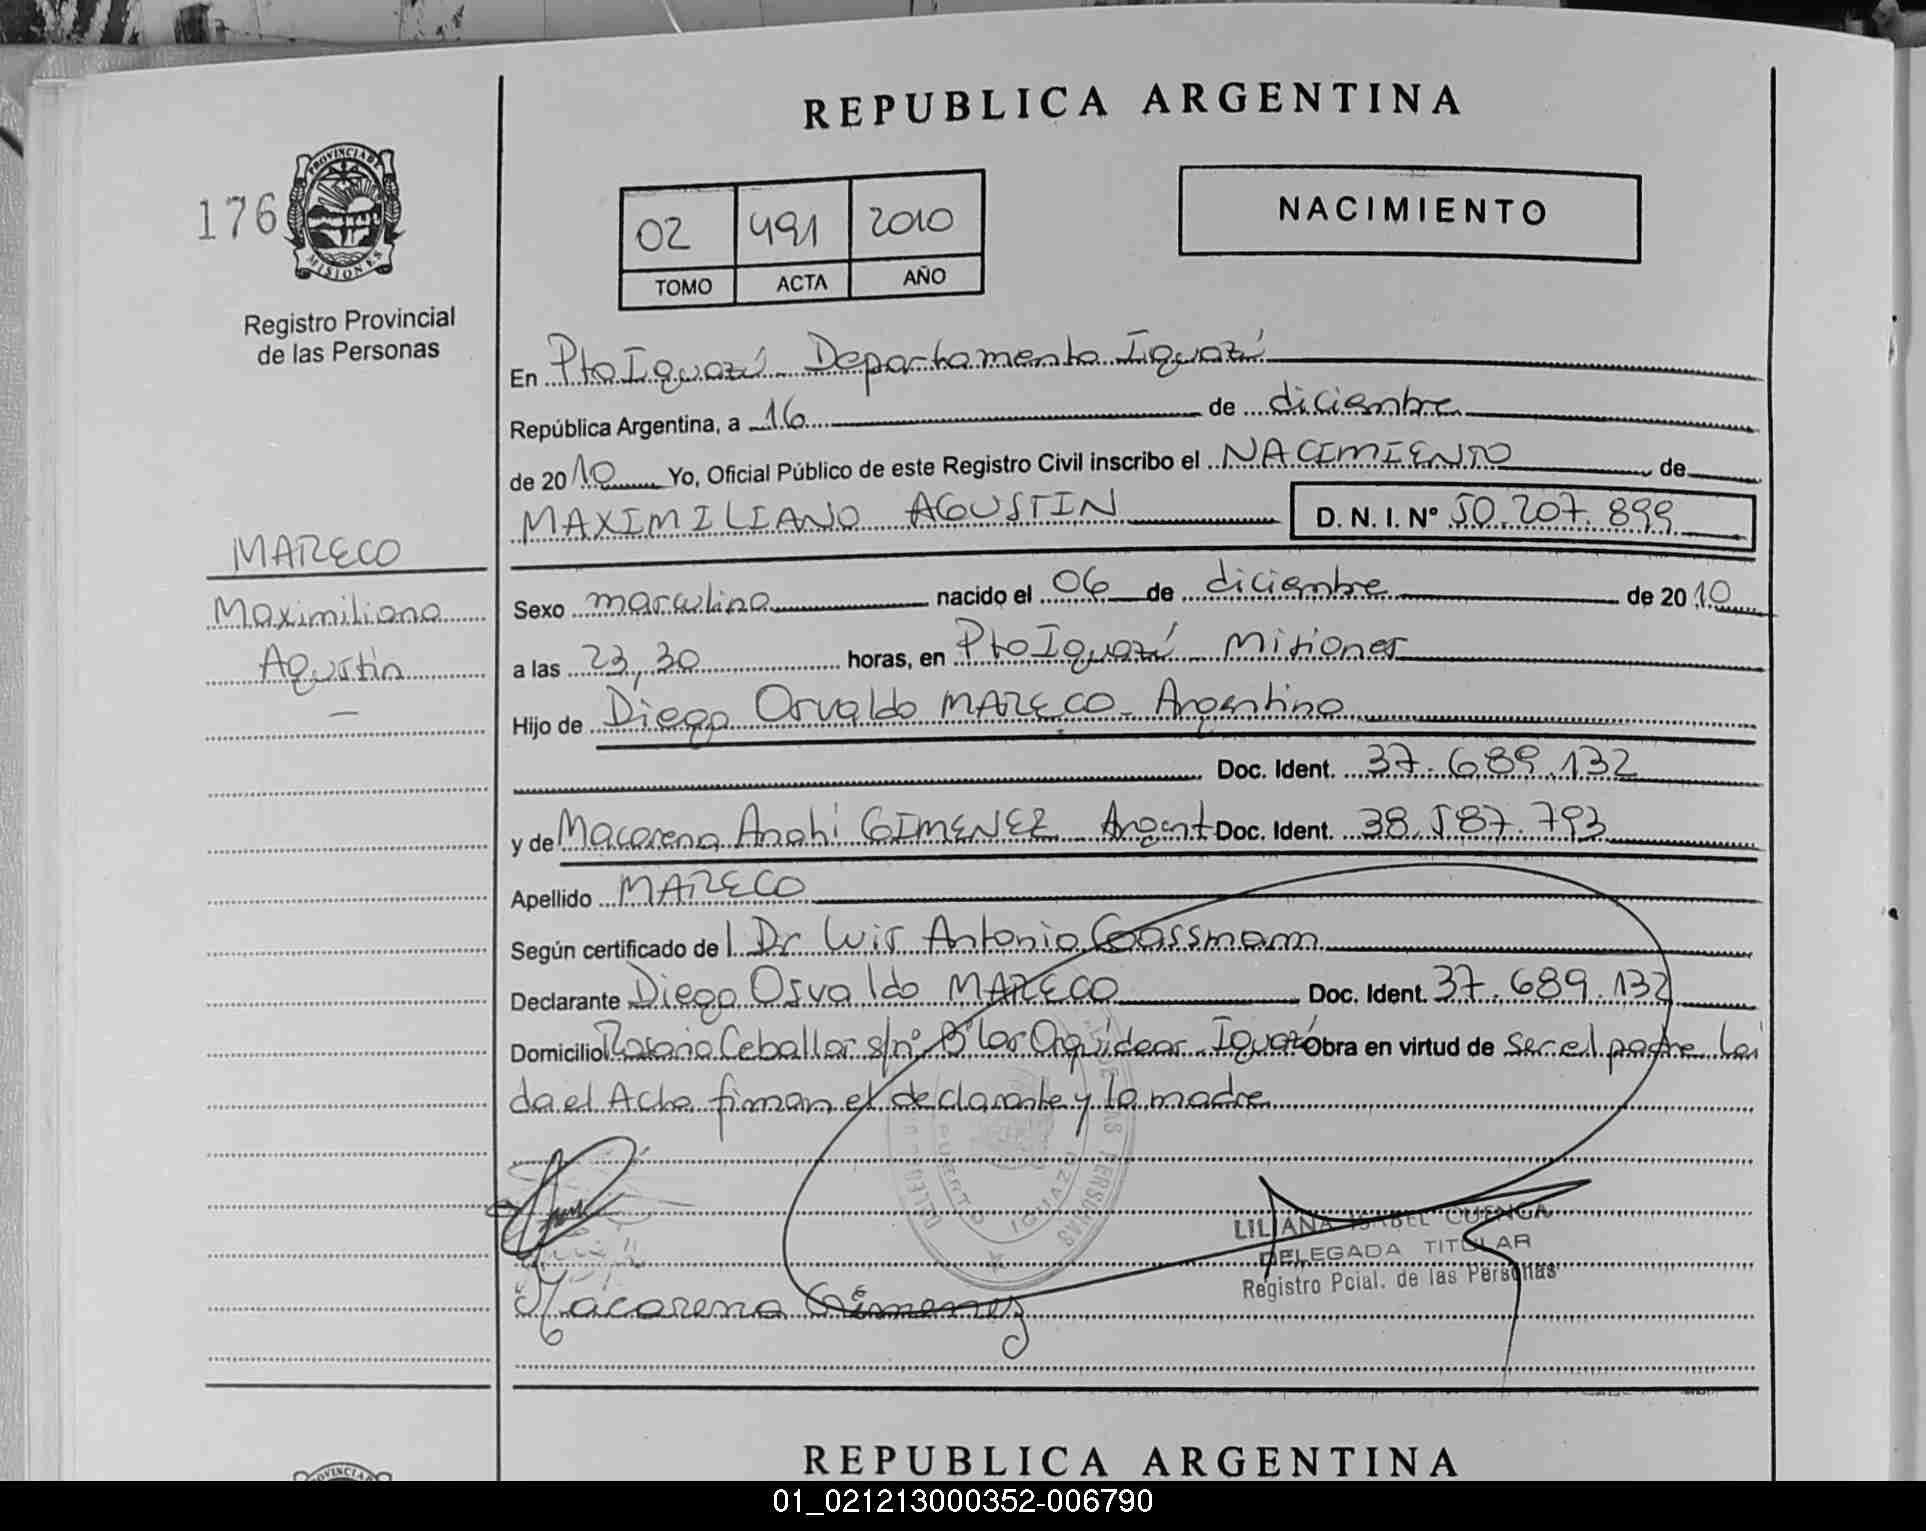 REPUBLICA ARGENTINA
176
PROVINCIA DE
MISIONES
Registro Provincial
de las Personas
02 491 2010
TOMO ACTA AÑO
NACIMIENTO
En Pto Iguazú Departamento Iguazú
República Argentina, a 16 de diciembre
de 2010 Yo, Oficial Público de este Registro Civil inscribo el NACIMIENTO de
MAXIMILIANO AGUSTIN D. N. I. Nº 50.207.899
MARECO
Maximiliano
Agustin
Sexo masculino nacido el 06 de diciembre de 2010
a las 23,30 horas, en Pto Iguazú Misiones
Hijo de Diego Osvaldo MARECO - Argentino
Doc. Ident. 37.689.132
y de Macarena Anahi GIMENEZ Argent Doc. Ident. 38.587.793
Apellido MARECO
Según certificado de l Dr Luis Antonio Gassmann
Declarante Diego Osvaldo MARECO Doc. Ident. 37.689.132
Domicilio Rosario Ceballos s/nº Bº Las Orquideas Iguazú Obra en virtud de ser el padre Lei
da el Acta firman el declarante y la madre
PUERTO IGUAZU
DE LAS PERSONAS
Macarena Gimenez
LILIANA ISABEL CUENCA
DELEGADA TITULAR
Registro Pcial. de las Personas
REPUBLICA ARGENTINA
01_021213000352-006790